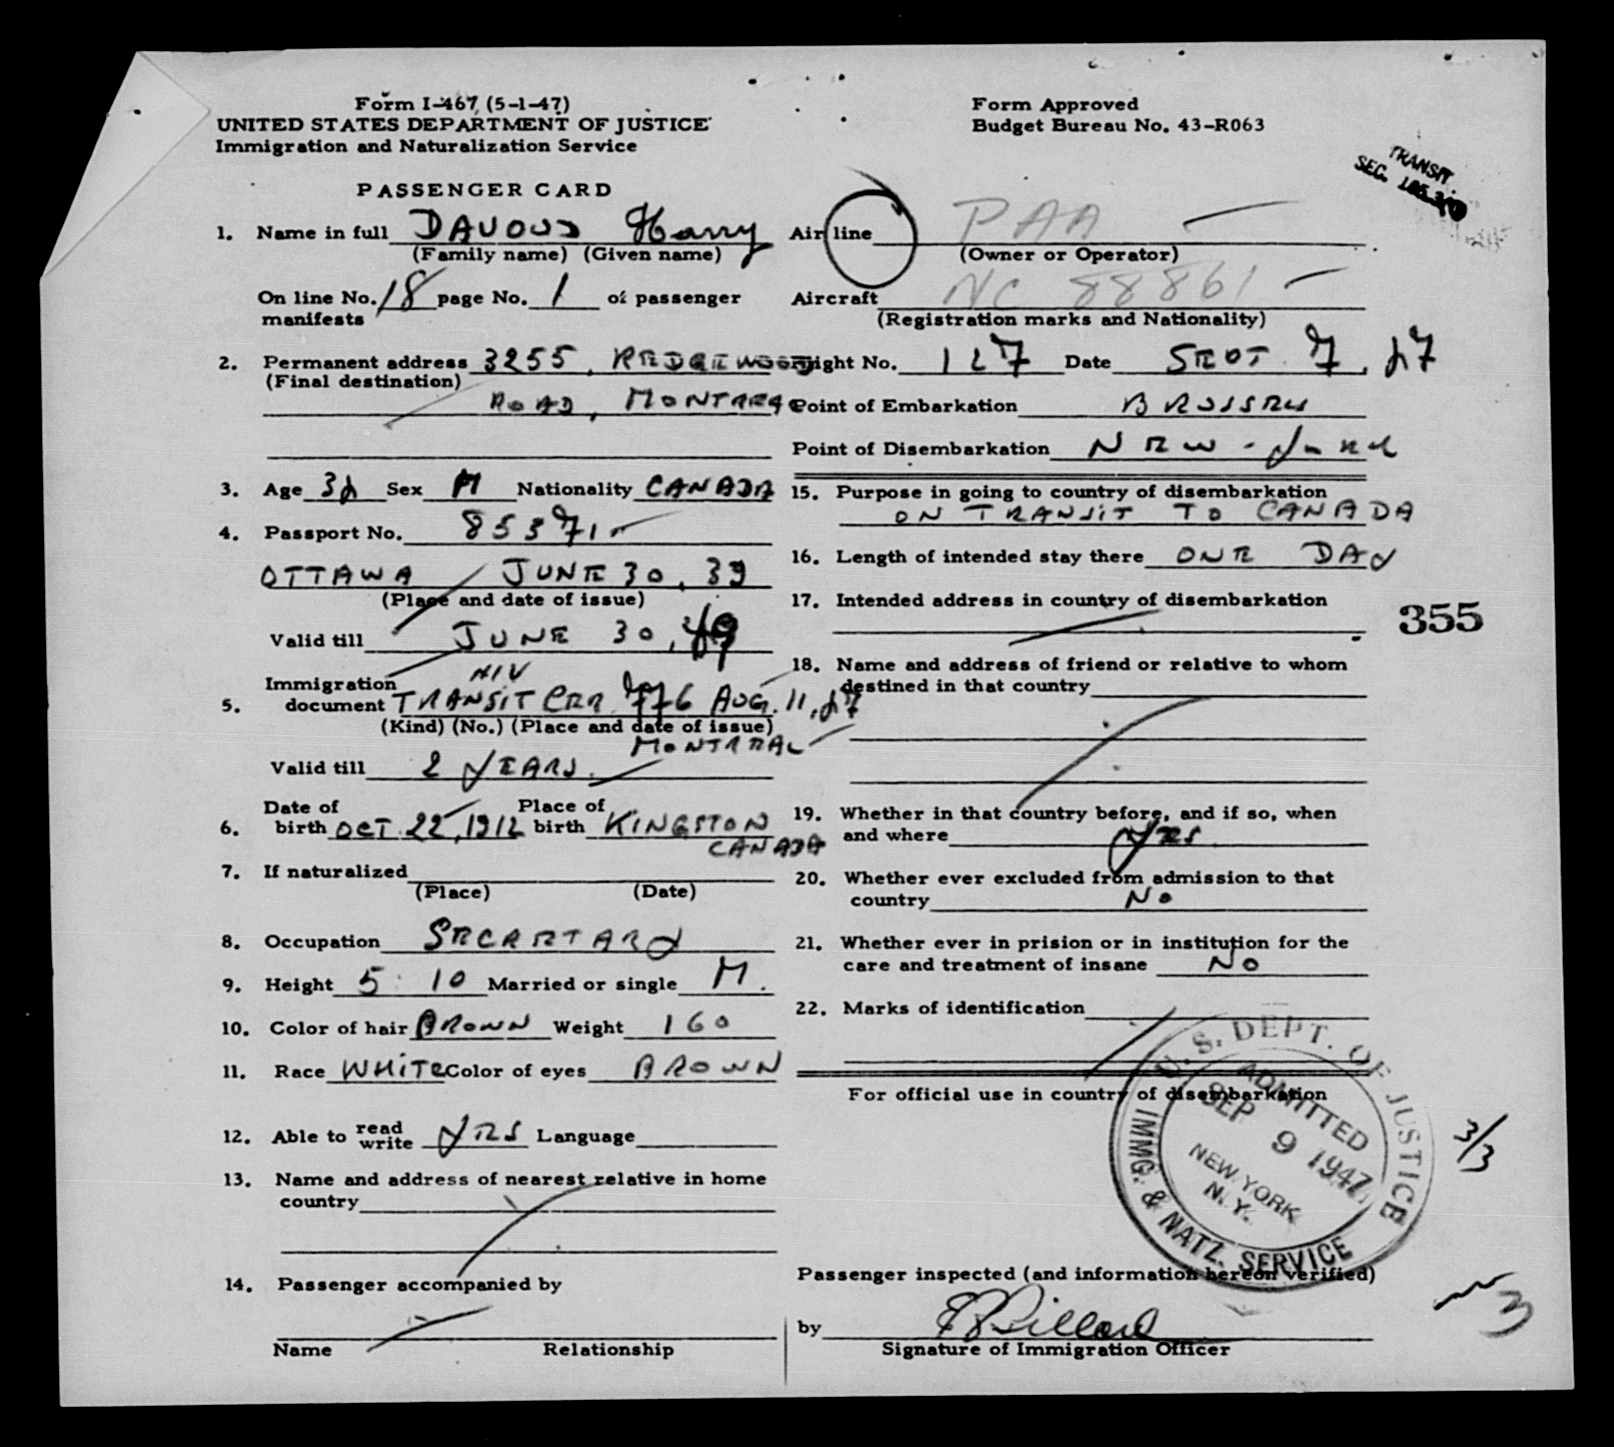 Form I-467 (5-1-47)
UNITED STATES DEPARTMENT OF JUSTICE
Immigration and Naturalization Service
Form Approved
Budget Bureau No. 43-R063
TRANSIT
SEC.
PASSENGER CARD
1. Name in full Harry
(Family name) (Given name)
On line No. 18 page No. 1 of passenger
manifests
2. Permanent address 3255, REDGEWOOD
(Final destination)
ROAD, MONTREAL
3. Age Sex M Nationality CANADA
4. Passport No. 85371
OTTAWA JUNE 30, 39
(Place and date of issue)
Valid till JUNE 30, 49
NIV
Immigration
5. document TRANSIT CER 776 AUG. 11, 47
(Kind) (No.) (Place and date of issue)
MONTREAL
Valid till 2 YEARS.
Date of Place of
6. birth OCT. 22, 1912 birth KINGSTON
CANADA
7. If naturalized
(Place) (Date)
8. Occupation SECRETARY
9. Height 5 10 Married or single M.
10. Color of hair BROWN Weight 160
11. Race WHITE Color of eyes BROWN
12. Able to read write YES Language
13. Name and address of nearest relative in home
country
14. Passenger accompanied by
Name Relationship
Air line PAA
(Owner or Operator)
Aircraft NC 88861
(Registration marks and Nationality)
Flight No. 127 Date SEPT. 7, 47
Point of Embarkation BRUSSELS
Point of Disembarkation NEW-YORK
15. Purpose in going to country of disembarkation
ON TRANSIT TO CANADA
16. Length of intended stay there ONE DAY
17. Intended address in country of disembarkation
355
18. Name and address of friend or relative to whom
destined in that country
19. Whether in that country before, and if so, when
and where YES
20. Whether ever excluded from admission to that
country NO
21. Whether ever in prision or in institution for the
care and treatment of insane NO
22. Marks of identification
For official use in country of disembarkation
U.S. DEPT. OF JUSTICE
ADMITTED
SEP 9 1947
NEW YORK
N.Y.
IMMG. & NATZ. SERVICE
3/3
Passenger inspected (and information hereon verified)
by
Signature of Immigration Officer